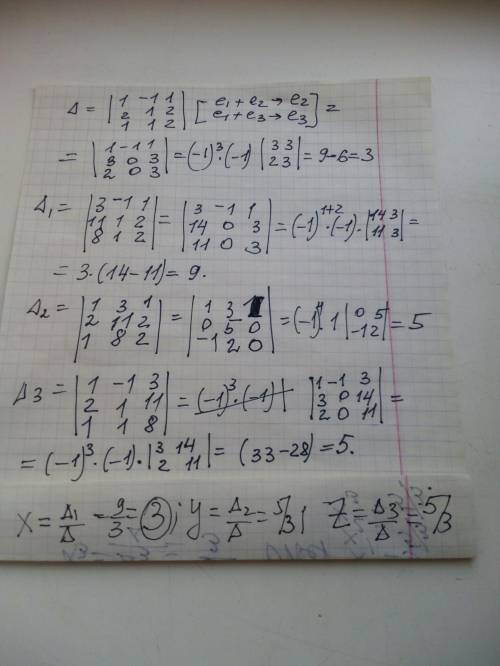 Δ = |1 -1 1; 2 1 2; 1 1 2| [e₁+e₂→e₂; e₁+e₃→e₃] =
= |1 -1 1; 3 0 3; 2 0 3| = (-1)³·(-1) |3 3; 2 3| = 9-6=3
Δ₁ = |3 -1 1; 11 1 2; 8 1 2| = |3 -1 1; 14 0 3; 11 0 3| = (-1)¹⁺²·(-1)·|14 3; 11 3| =
= 3·(14-11) = 9.
Δ₂ = |1 3 1; 2 11 2; 1 8 2| = |1 3 1; 0 5 0; -1 2 0| = (-1)⁴·1 |0 5; -1 2| = 5
Δ3 = |1 -1 3; 2 1 11; 1 1 8| = |1 -1 3; 3 0 14; 2 0 11| =
= (-1)³·(-1)·|3 14; 2 11| = (33-28) = 5.
X = Δ₁/Δ = 9/3 = 3; y = Δ₂/Δ = 5/3; Z = Δ3/Δ = 5/3